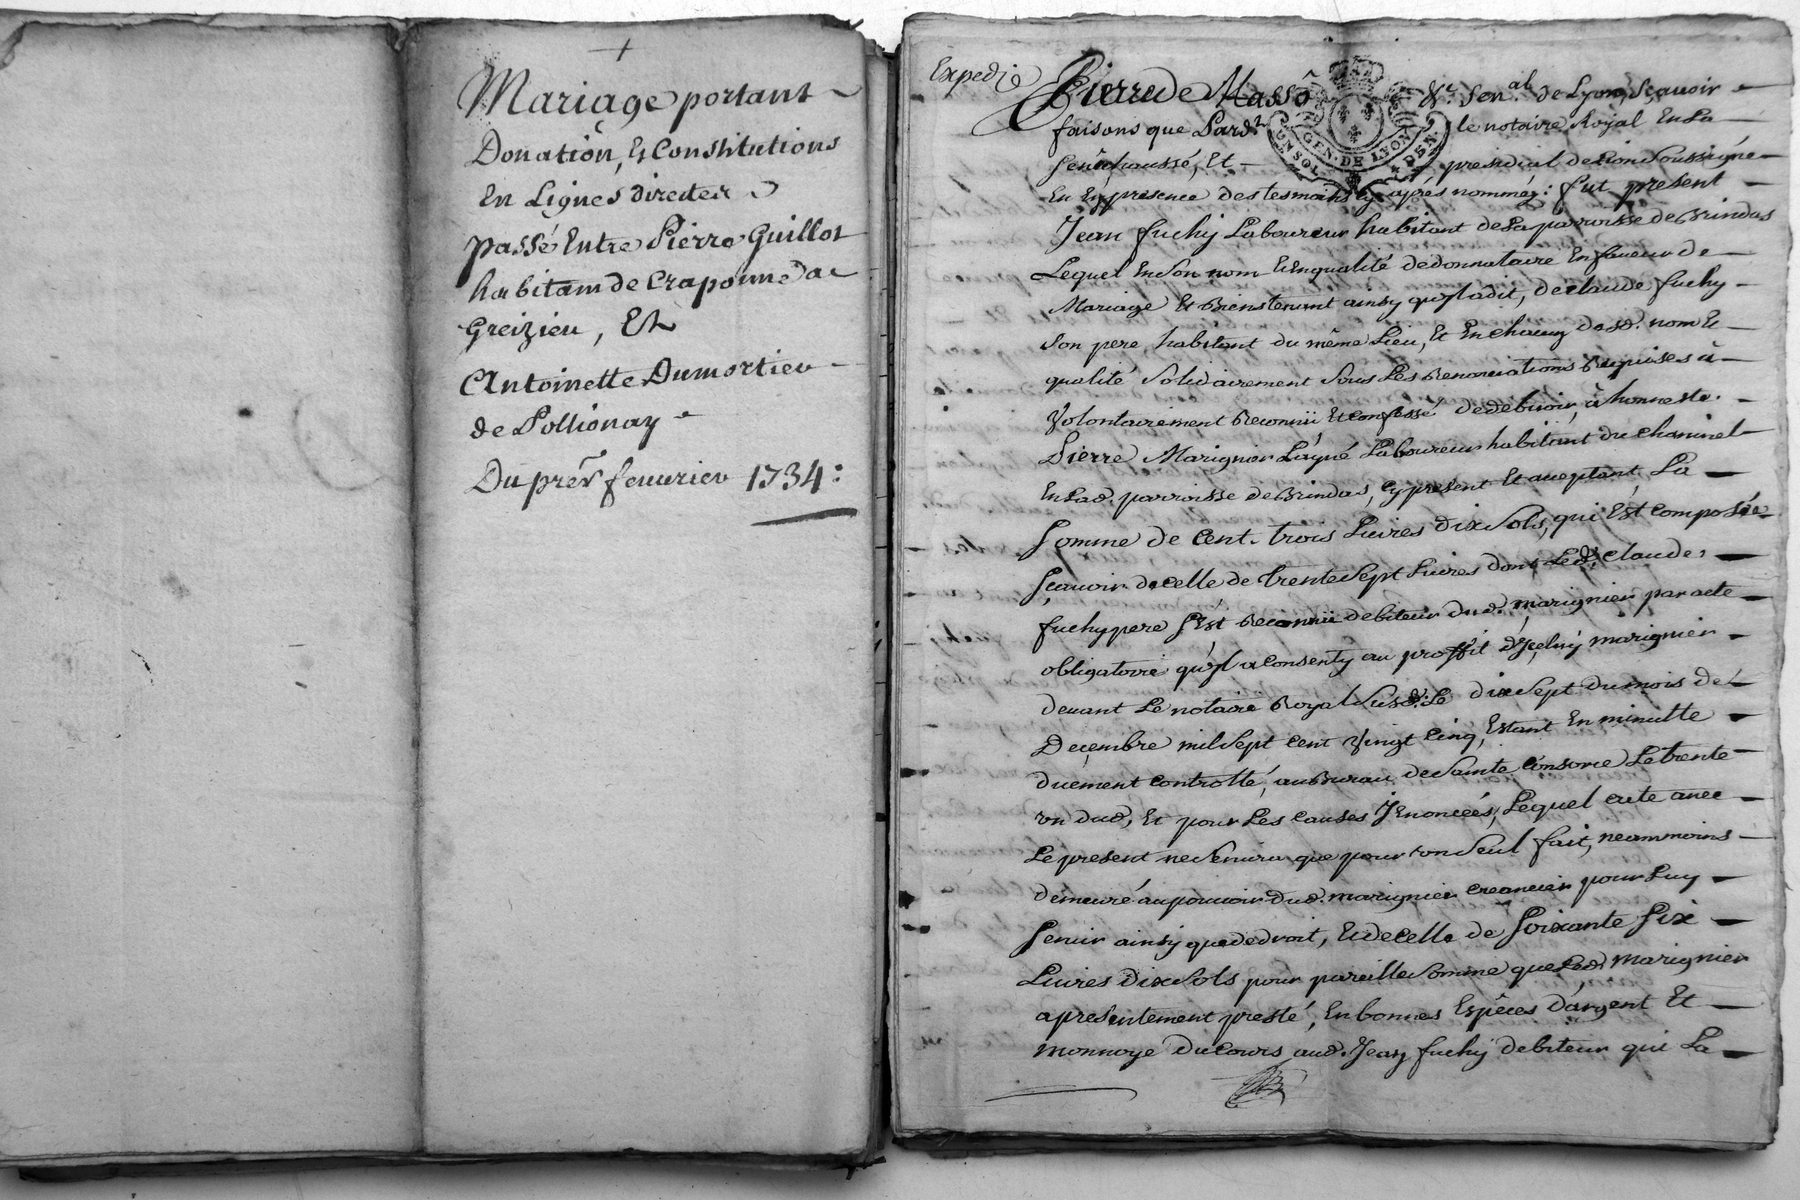 Mariage portant
Donation, Et Constitutions
En Lignes directes
passé Entre Pierre Guillot
habitant de Craponne de
Greizieu, Et
Antoinette Dumortier
de Pollionay
Du prer. feuurier 1734:
Expedié
Pierre de Masso
&c. Sen.al de Lyon, Sçauoir
faisons que Pard.t
le notaire Royal En La
Senéchaussé, Et
presidial de Lion Soussigné
En presence des tesmoins cy après nommés: fut present
Jean fuchy Laboureur habitant de La parroisse de Brindas
Lequel En Son nom Et En qualité de donnataire En faueur de
Mariage Et Bienstenant ainsy qu'jl a dit, de claude fuchy
Son pere, habitant du même Lieu, Et En chacun desd. nom Et
qualité Solidairement Sous Les Renonciations Requises à
Volontairement Reconnü Et confessé de debuoir, à honneste.
Pierre Marignier Layné Laboureur habitant du chaminel
En Lad. parroisse de Brindas, cy present Et acceptant La
Somme de Cent. trois Liures dix Sols, qui Est composée
Sçauoir de celle de trente Sept Liures dont Led. claude
fuchy pere S'est Reconnü debiteur dud. marignier par acte
obligatoire qu'jl a Consenty au proffit d'jceluy marignier
deuant Le notaire Royal Susd. Le dix Sept du mois de
Decembre mil Sept Cent Vingt Cinq, Estant En minutte
duëment controllé, au Bureau de Sainte Consorce Le trente
vn dud, Et pour Les Causes Y Enoncées, Lequel acte auec
Le present ne Seruira que pour vn Seul fait, neanmoins
demeuré au pouuoir dud. marignier creancier pour Luy
Seruir ainsy que de droit, Et de celle de Soixante Six
Liures Dix Sols pour pareille Somme que Led. Marignier
a presentement presté, En bonnes Espèces d'argent Et
monnoye du Cours aud. Jean fuchy debiteur qui La
GEN. DE LYON